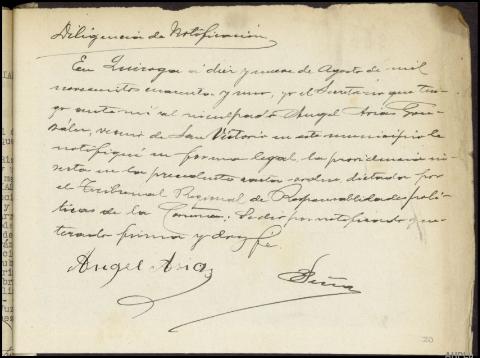 Diligencia de Notificación
En Quiroga á diez y nueve de Agosto de mil
novecientos cuarenta y uno, yo el Secretario que ten-
go ante mí al inculpado Angel Arias Gon-
zález, vecino de San Victorio en este municipio le
notifiqué en forma legal, la providencia in-
serta en la precedente carta-orden, dictada por
el Tribunal Regional de Responsabilidades polí-
ticas de la Coruña; Se dio por notificado y en-
terado firma y doy fe.
Angel Arias
20